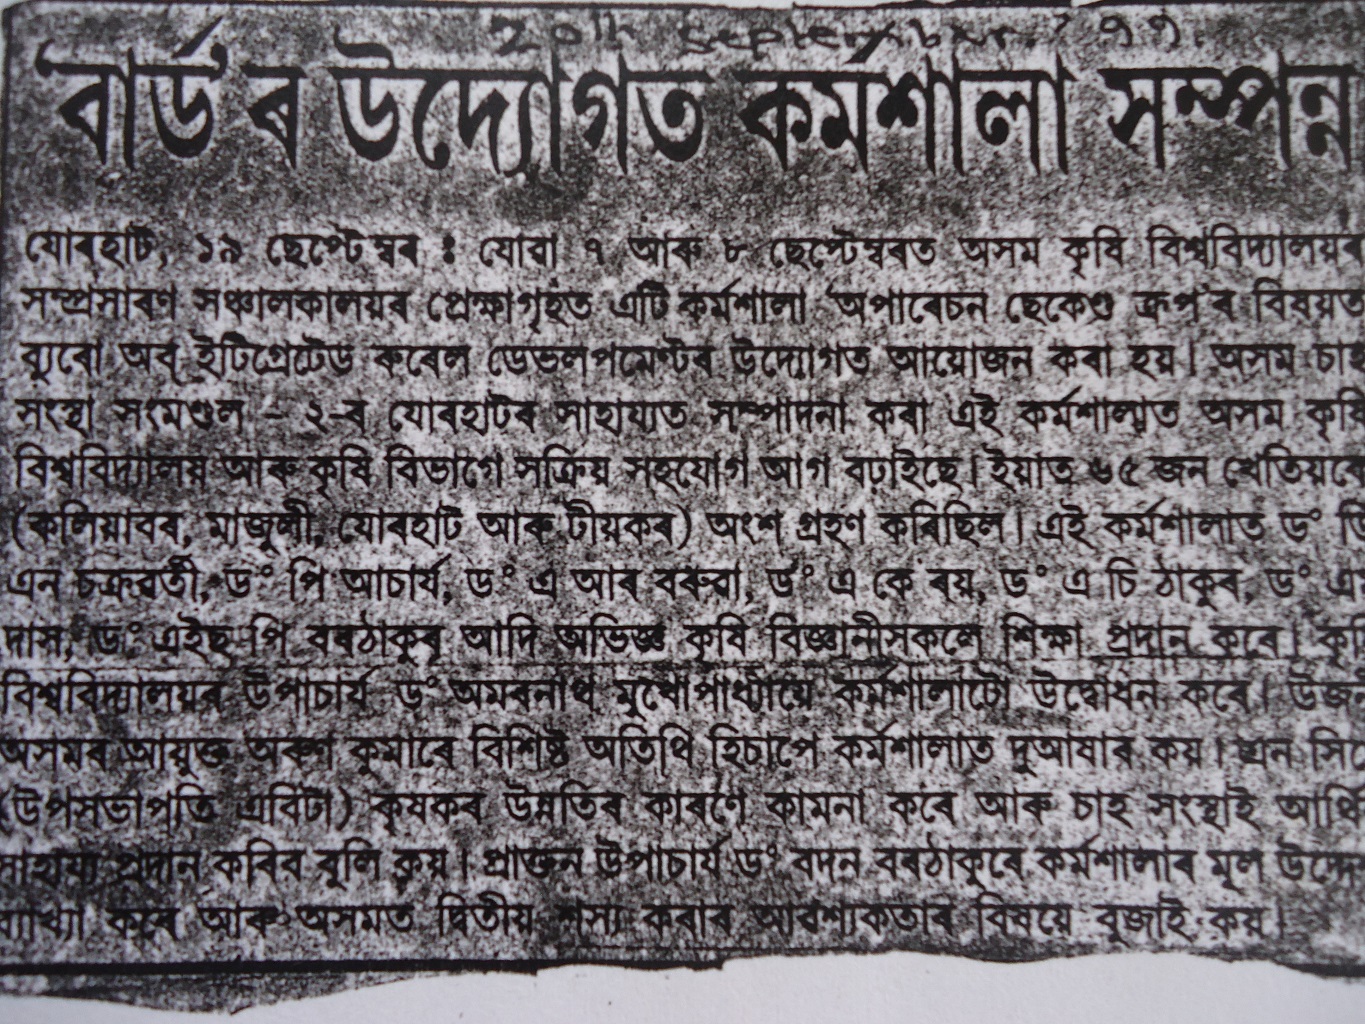 20th September. '99.
'বাৰ্ড'ৰ উদ্যোগত কৰ্মশালা সম্পন্ন
যোৰহাট, ১৯ ছেপ্টেম্বৰ : যোৱা ৭ আৰু ৮ ছেপ্টেম্বৰত অসম কৃষি বিশ্ববিদ্যালয়ৰ
সম্প্ৰসাৰণ সঞ্চালকালয়ৰ প্ৰেক্ষাগৃহত এটি কৰ্মশালা 'অপাৰেচন ছেকেণ্ড ক্ৰপ'ৰ বিষয়ত
ব্যুৰো অব্ ইটিগ্ৰেটেড ৰুৰেল ডেভলপমেণ্টৰ উদ্যোগত আয়োজন কৰা হয়। অসম চাহ
সংস্থা সংমণ্ডল - ২-ৰ যোৰহাটৰ সাহায্যত সম্পাদনা কৰা এই কৰ্মশালাত অসম কৃষি
বিশ্ববিদ্যালয় আৰু কৃষি বিভাগে সক্ৰিয় সহযোগ আগ বঢ়াইছে। ইয়াত ৬৫ জন খেতিয়কে
(কলিয়াবৰ, মাজুলী, যোৰহাট আৰু টীয়কৰ) অংশ গ্ৰহণ কৰিছিল। এই কৰ্মশালাত ড°
এন চক্ৰৱৰ্তী, ড° পি আচাৰ্য, ড° এ আৰ বৰুৱা, ড° এ কে ৰয়, ড° এ চি ঠাকুৰ, ড°
দাস, ড° এইছ পি বৰঠাকুৰ আদি অভিজ্ঞ কৃষি বিজ্ঞানীসকলে শিক্ষা প্ৰদান কৰে। কৃষি
বিশ্ববিদ্যালয়ৰ উপাচাৰ্য ড° অমৰনাথ মুখোপাধ্যায়ে কৰ্মশালাটো উদ্বোধন কৰে। উজনি
অসমৰ আয়ুক্ত অৰুণ কুমাৰে বিশিষ্ট অতিথি হিচাপে কৰ্মশালাত দুআষাৰ কয়। এন
(উপসভাপতি এবিটা) কৃষকৰ উন্নতিৰ কাৰণে কামনা কৰে আৰু চাহ সংস্থাই আৰ্থিক
সাহায্য প্ৰদান কৰিব বুলি কয়। প্ৰাক্তন উপাচাৰ্য ড° বদন বৰঠাকুৰে কৰ্মশালাৰ মূল উদ্দেশ্য
ব্যাখ্যা কৰে আৰু অসমত দ্বিতীয় শস্য কৰাৰ আৱশ্যকতাৰ বিষয়ে বুজাই কয়।